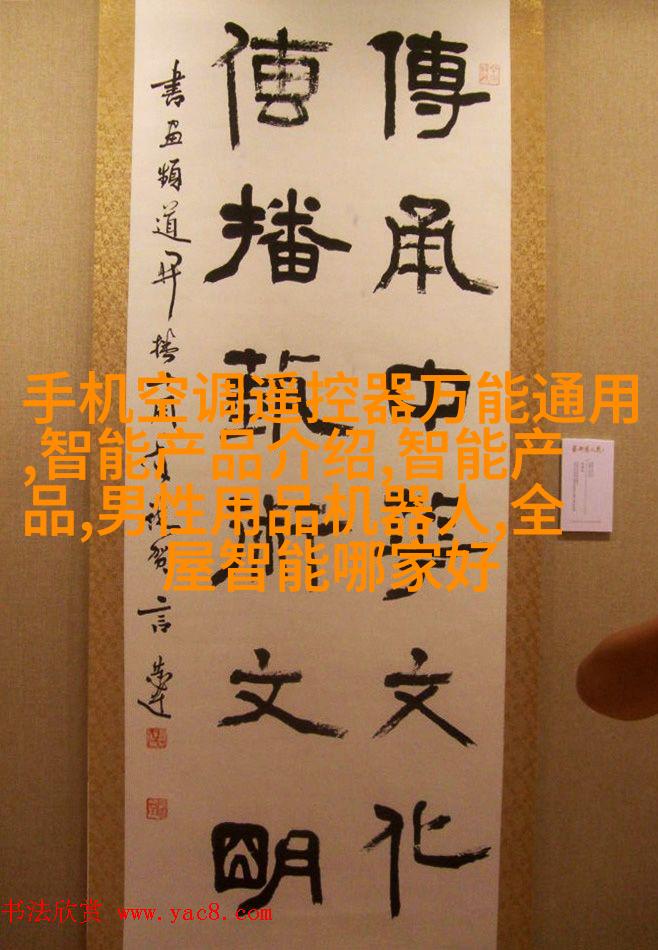 傳承中華文化
傳播藝術文明
書画頻道開播
手机空调遥控器万能通用
,智能产品介绍,智能产
品,男性用品机器人,全
屋智能哪家好
书法欣赏 www.yac8.com